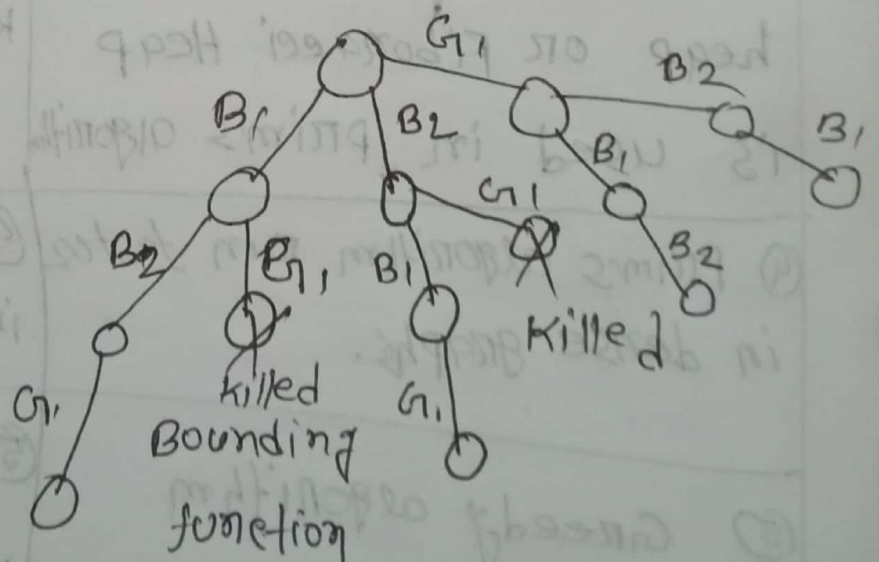 G1
B2
B1
B1
B2
B1
G1
B2
G1
B1
B2
Killed
G1
killed
G1
Bounding
function